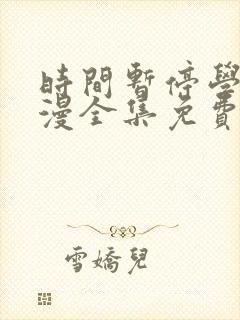 時間暫停學
漫全集免費
雪嬌兒